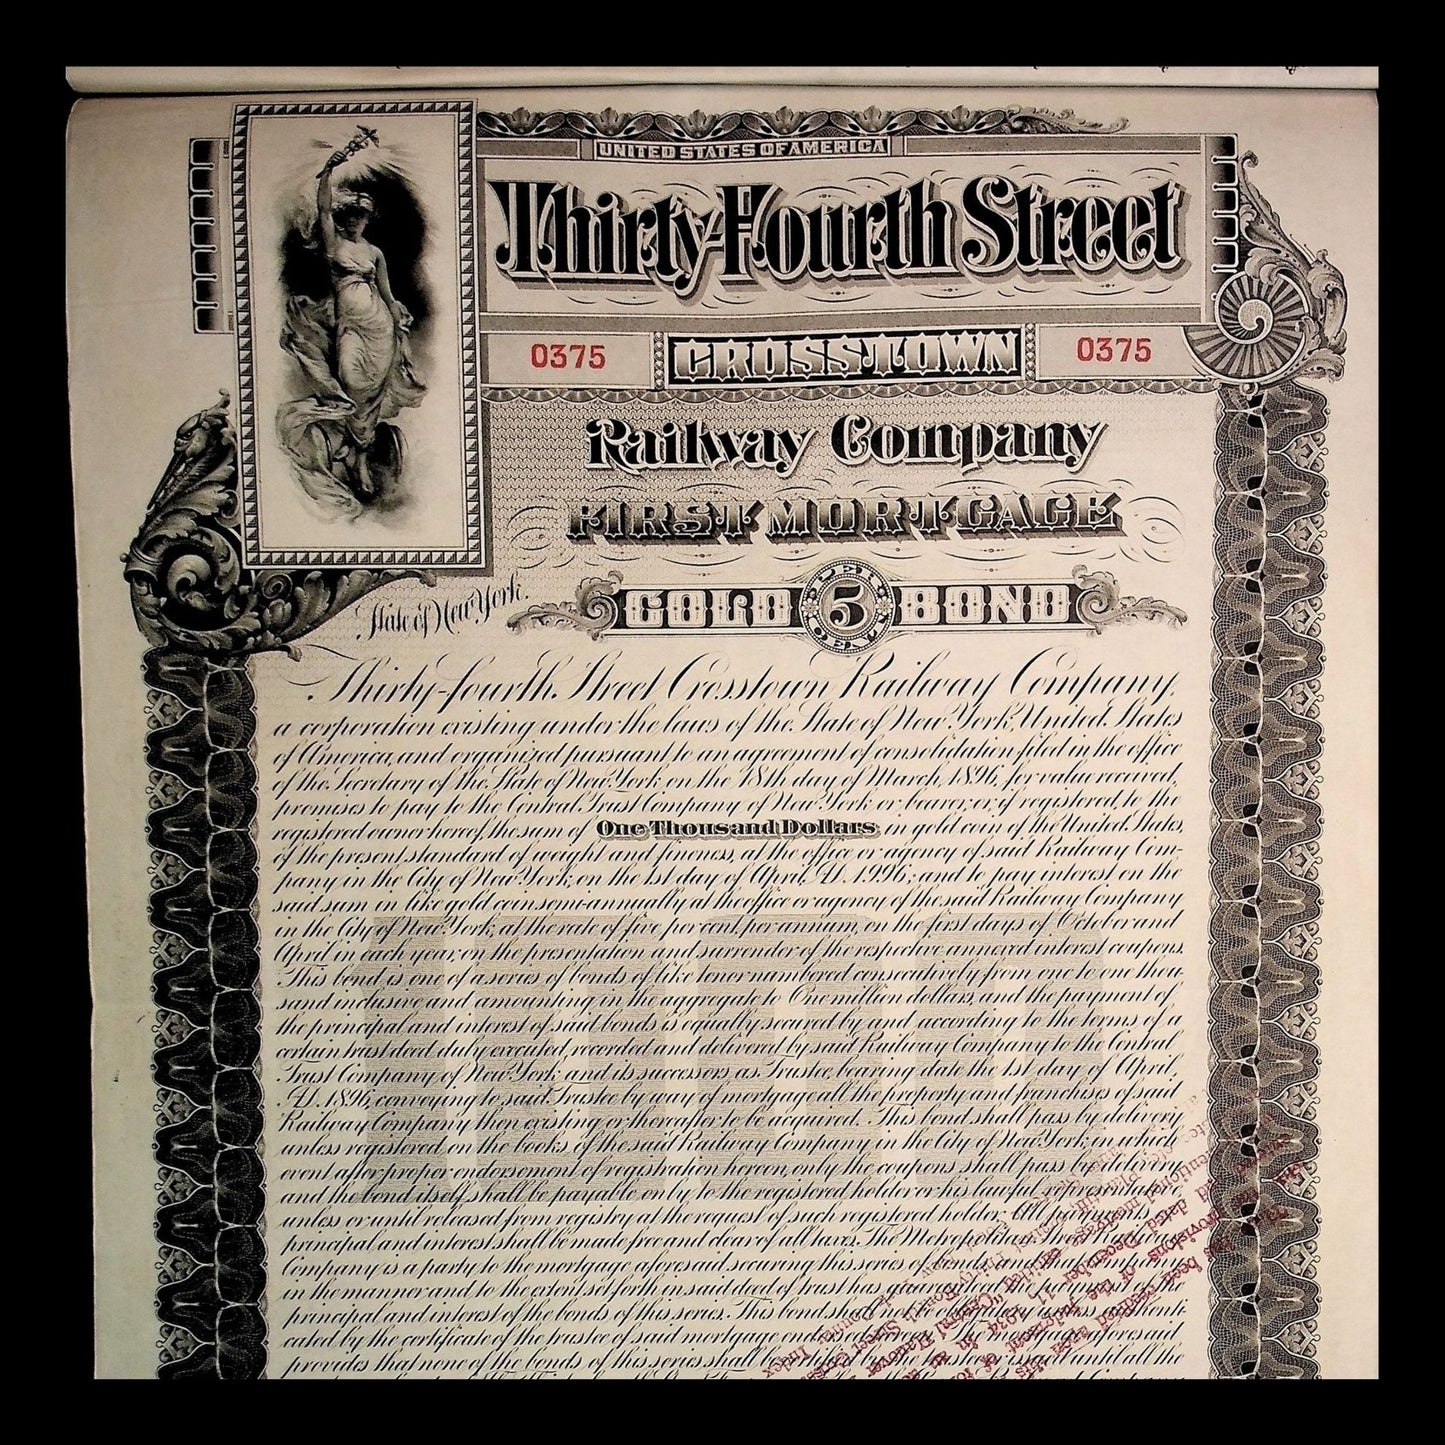 UNITED STATES OF AMERICA
Thirty-Fourth Street
0375 CROSSTOWN 0375
Railway Company
FIRST MORTGAGE
State of New York.
GOLD 5 BOND
PER CENT
Thirty-fourth Street Crosstown Railway Company,
a corporation existing under the laws of the State of New York, United States
of America, and organized pursuant to an agreement of consolidation filed in the office
of the Secretary of the State of New York on the 18th day of March, 1896, for value received,
promises to pay to the Central Trust Company of New York or bearer, or, if registered, to the
registered owner hereof, the sum of One Thousand Dollars in gold coin of the United States,
of the present standard of weight and fineness, at the office or agency of said Railway Com-
pany in the City of New York, on the 1st day of April, A.D. 1996; and to pay interest on the
said sum in like gold coin semi-annually at the office or agency of the said Railway Company
in the City of New York, at the rate of five per cent. per annum, on the first days of October and
April in each year, on the presentation and surrender of the respective annexed interest coupons.
This bond is one of a series of bonds of like tenor numbered consecutively from one to one thou-
sand inclusive and amounting in the aggregate to One million dollars, and the payment of
the principal and interest of said bonds is equally secured by and according to the terms of a
certain trust deed duly executed, recorded and delivered by said Railway Company to the Central
Trust Company of New York and its successors as Trustee, bearing date the 1st day of April,
A.D. 1896, conveying to said Trustee by way of mortgage all the property and franchises of said
Railway Company then existing or thereafter to be acquired. This bond shall pass by delivery
unless registered on the books of the said Railway Company in the City of New York, in which
event after proper endorsement of registration hereon, only the coupons shall pass by delivery
and the bond itself shall be payable only to the registered holder or his lawful representative
unless or until released from registry at the request of such registered holder. All payments of
principal and interest shall be made free and clear of all taxes. The Metropolitan Street Railway
Company is a party to the mortgage aforesaid securing this series of bonds and that Company
in the manner and to the extent set forth in said deed of trust has guaranteed the payment of the
principal and interest of the bonds of this series. This bond shall not be obligatory unless authenti-
cated by the certificate of the trustee of said mortgage endorsed hereon. The mortgage aforesaid
provides that none of the bonds of this series shall be certified by the trustee or issued until all the